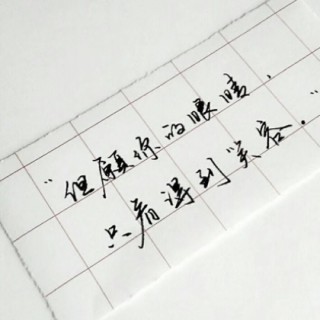 “但願你的眼睛，
只看得到笑容。”